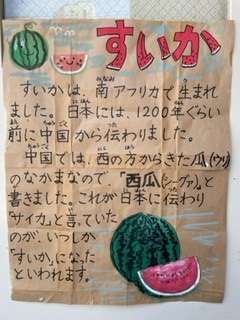 すいか
すいかは、南アフリカで生まれ
ました。日本には、1200年ぐらい
前に中国から伝わりました。
中国では、西の方からきた瓜(ウリ)
のなかまなので、「西瓜(シーグァ)」と
書きました。これが日本に伝わり
「サイカ」と言っていた
のが、いつしか
「すいか」になった
といわれます。